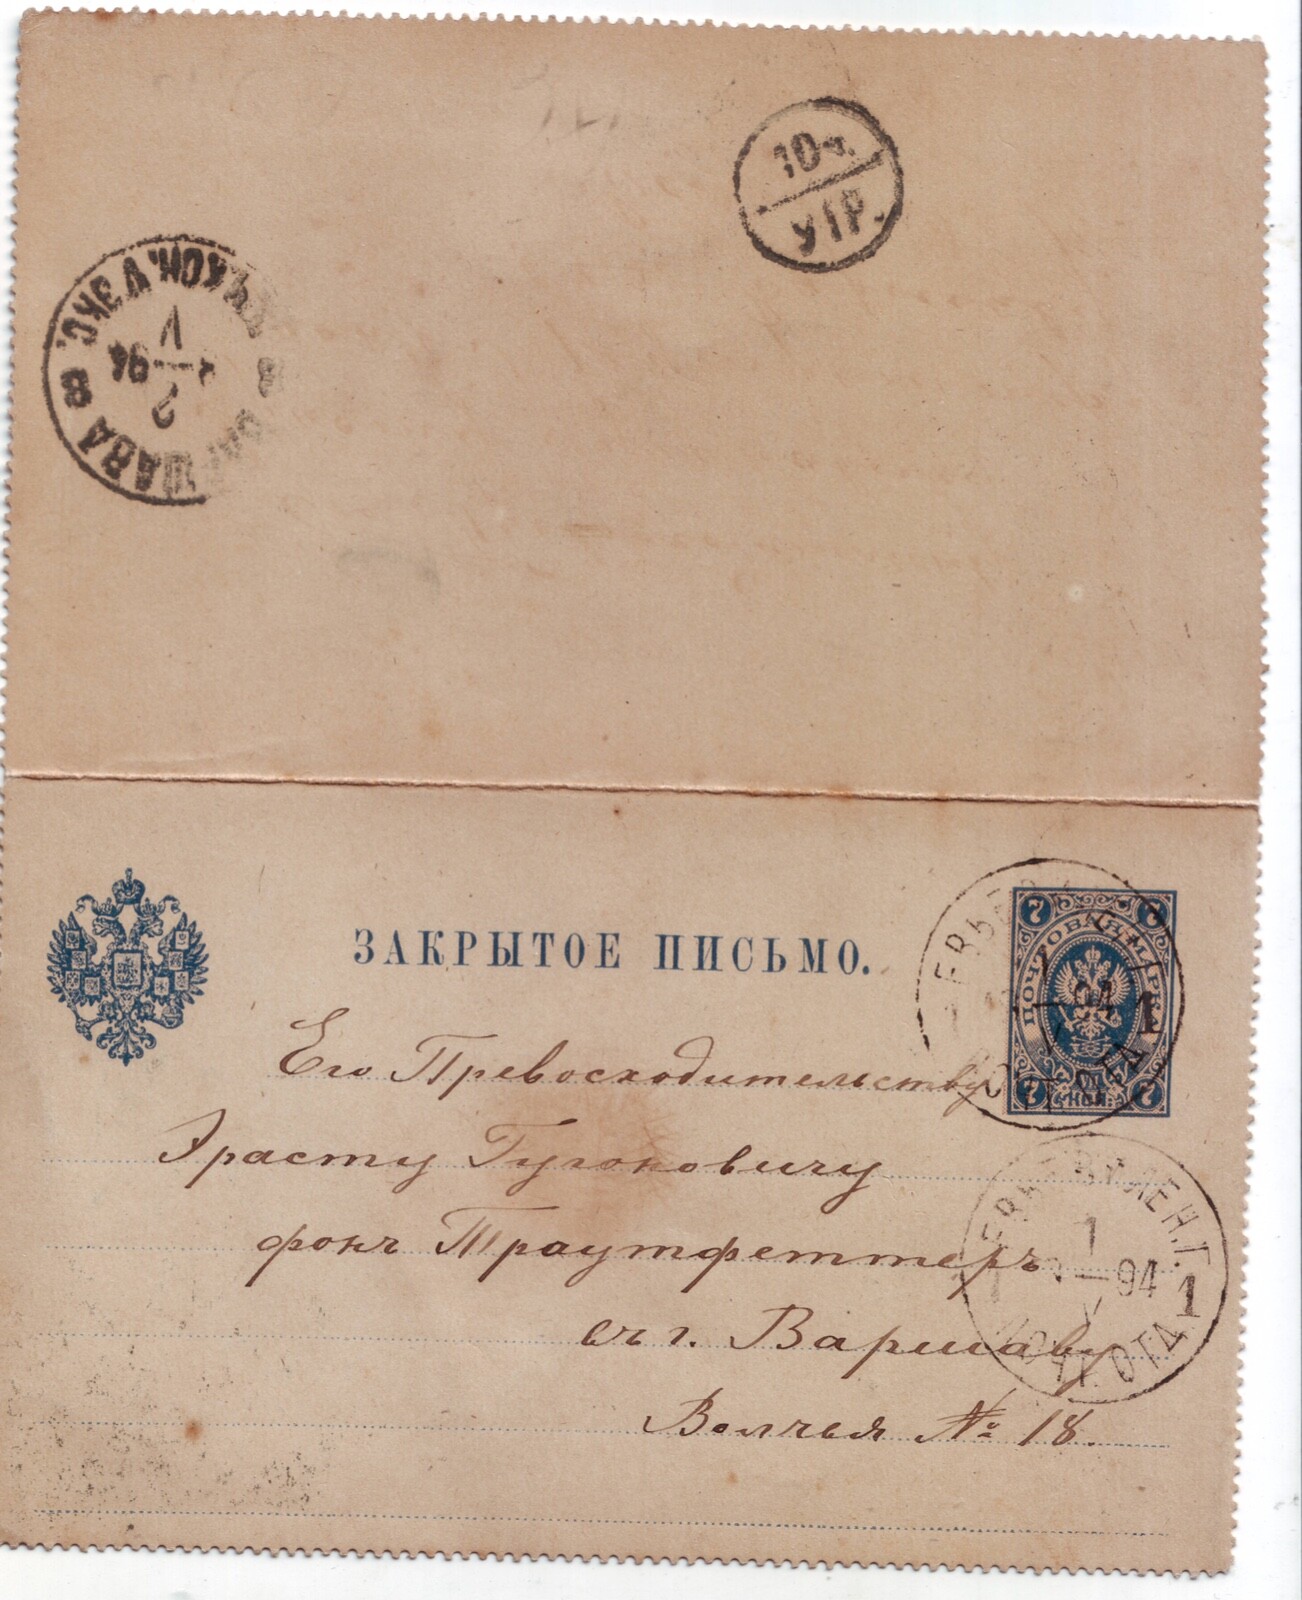 10 ч.
УТР.
ВАРШАВА
2
V
94
ЗАКРЫТОЕ ПИСЬМО.
7 7
ПОЧТОВАЯ МАРКА
КОП.
7 7
94
1
Его Превосходительству
Эрасту Гугоновичу
фонъ Траутфеттеръ
въ г. Варшаву
Волчья № 18.
1
94
1